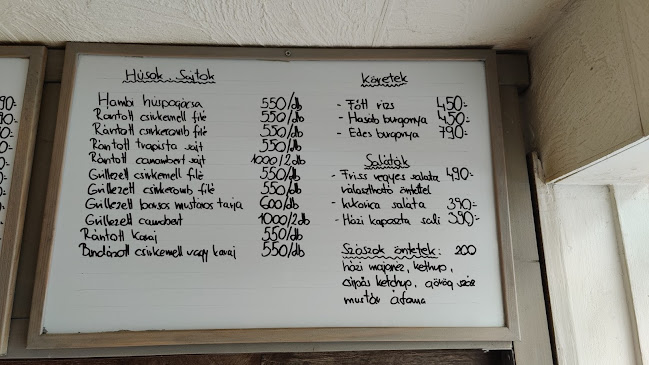 Húsok, Sajtok
Hambi húspogácsa 550/db
Rántott csirkemell filé 550/db
Rántott csirkecomb filé 550/db
Rántott trapista sajt 550/db
Rántott camambert sajt 1000/2db
Grillezett csirkemell filé 550/db
Grillezett csirkecomb filé 550/db
Grillezett borsos mustáros tarja 600/db
Grillezett camambert 1000/2db
Rántott karaj 550/db
Bundázott csirkemell vagy karaj 550/db
Köretek
- Főtt rizs 450.-
- Hasáb burgonya 450.-
- Édes burgonya 790.-
Saláták
- Friss vegyes saláta 490.-
választható öntettel
- kukorica saláta 390.-
- Házi kaposzta sali 390.-
Szószok öntetek: 200
házi majonéz, kethup,
csipős ketchup, görög szósz
mustár áfonya
90.-